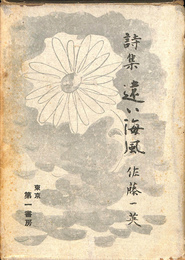 詩集 遠い海風
佐藤一英
東京
第一書房